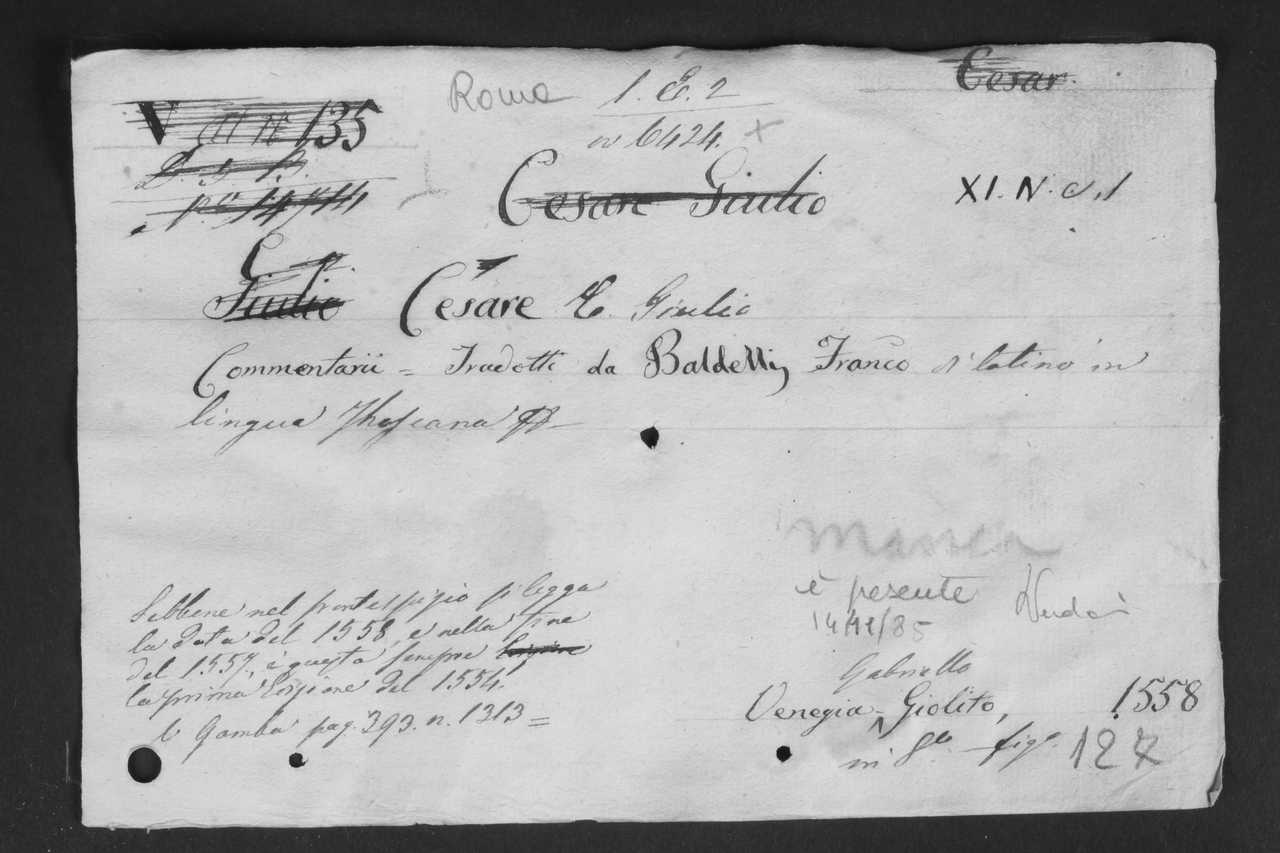 Roma 1. E. 2
Cesar
V 135
6424. X
Cesare Giulio
XI. N. c. 1
C.
Giulio Cesare C. Giulio
Commentarii = Tradotti da Baldelli, Franco di latino in
lingua Thoscana
è presente
14/12/85
Sebbene nel frontespizio si legga
la data del 1558, e nella fine
del 1557, è questa sempre
la prima Edizione del 1554.
V. Gamba pag. 393. n. 1313 =
Gabriello
Venezia - Giolito, 1558
in 8º fig.
127